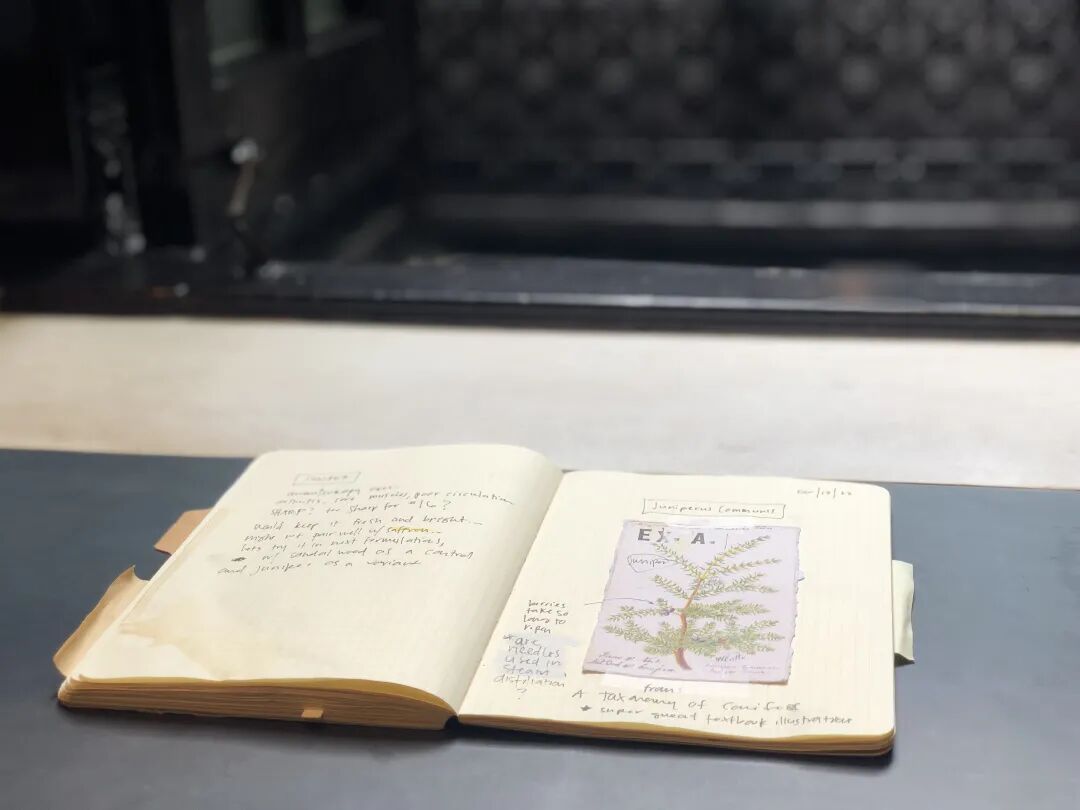 arthritis, sore muscles, poor circulation
sharp? too sharp for #16?
would keep it fresh and bright...
might not pair well w/ saffron...
lets try it in next formulations,
w/ sandalwood as a control
and juniper as a variable
Juniperus Communis
EX. A.
Juniper
berries
take so
long to
ripen
*are
needles
used in
steam
distillation
?
from:
A taxonomy of Conifers
★ super great textbook illustration